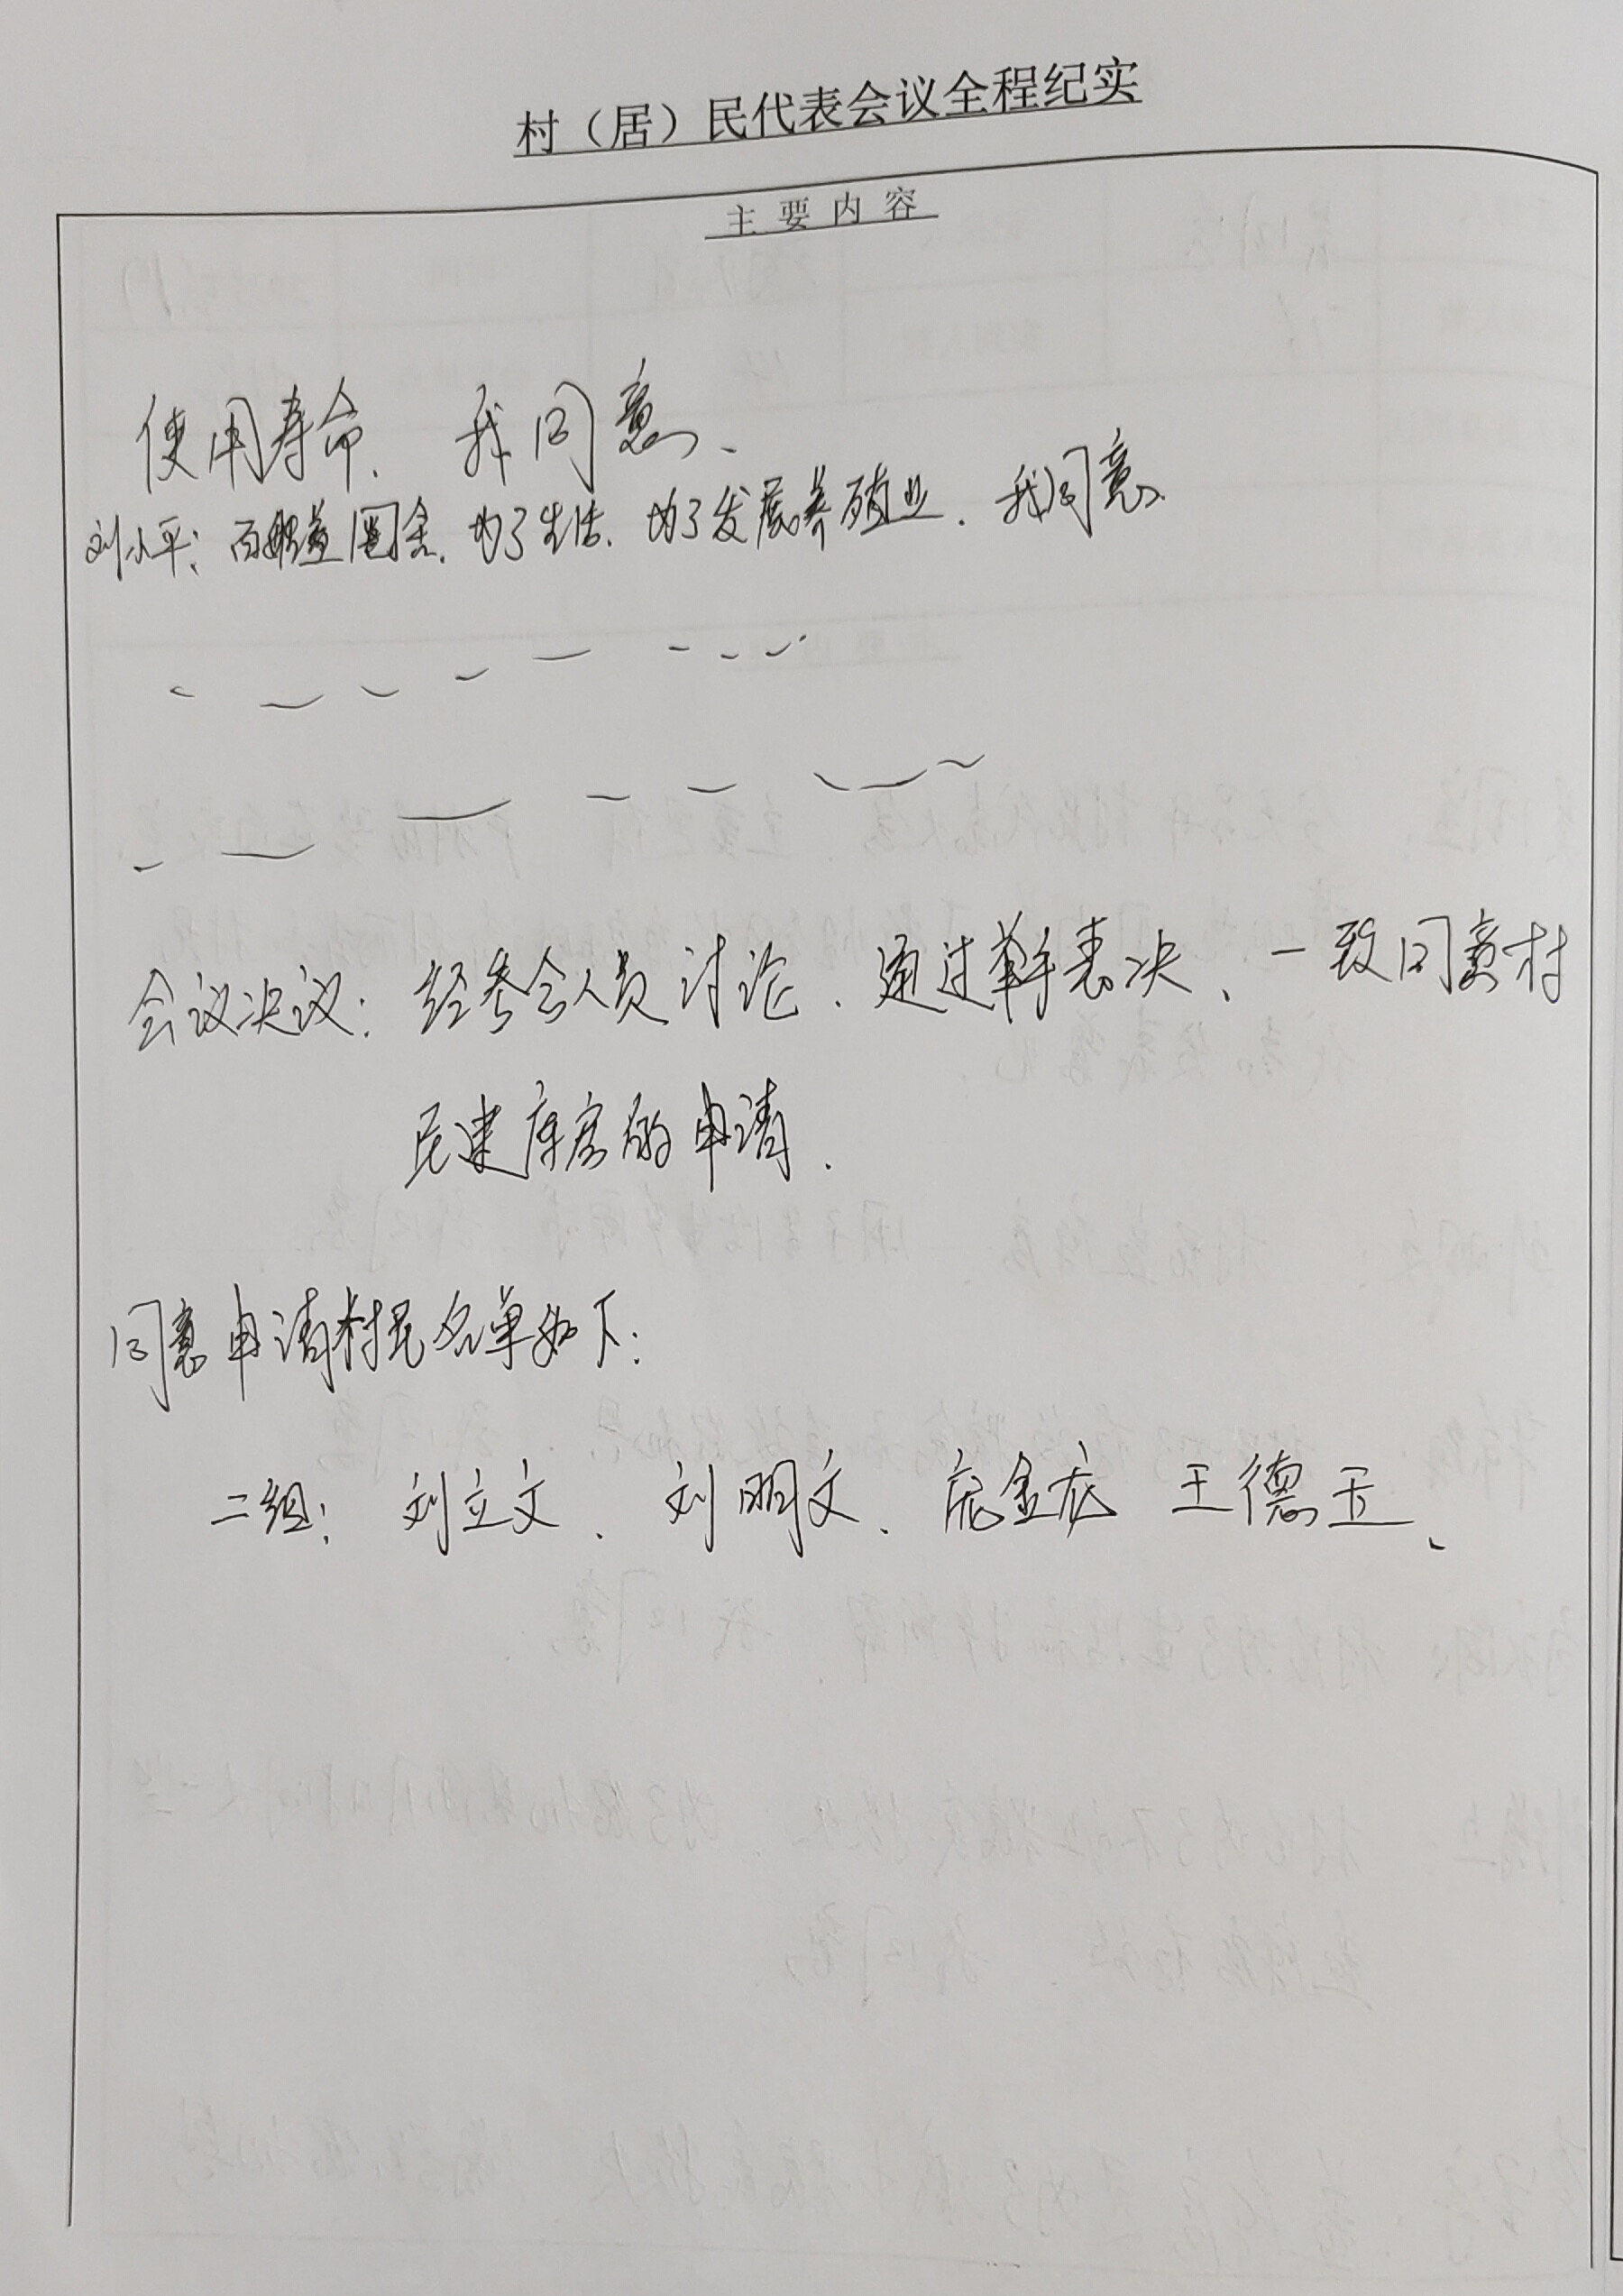 村（居）民代表会议全程纪实
主 要 内 容
使用寿命、我同意、
刘小平：百姓盖圈舍、为了生活、为了发展养殖业、我同意
会议决议：经参会人员讨论、通过举手表决、一致同意村
民建库房的申请.
同意申请村民名单如下：
二组：刘立文、刘明文、庞金龙 王德玉、